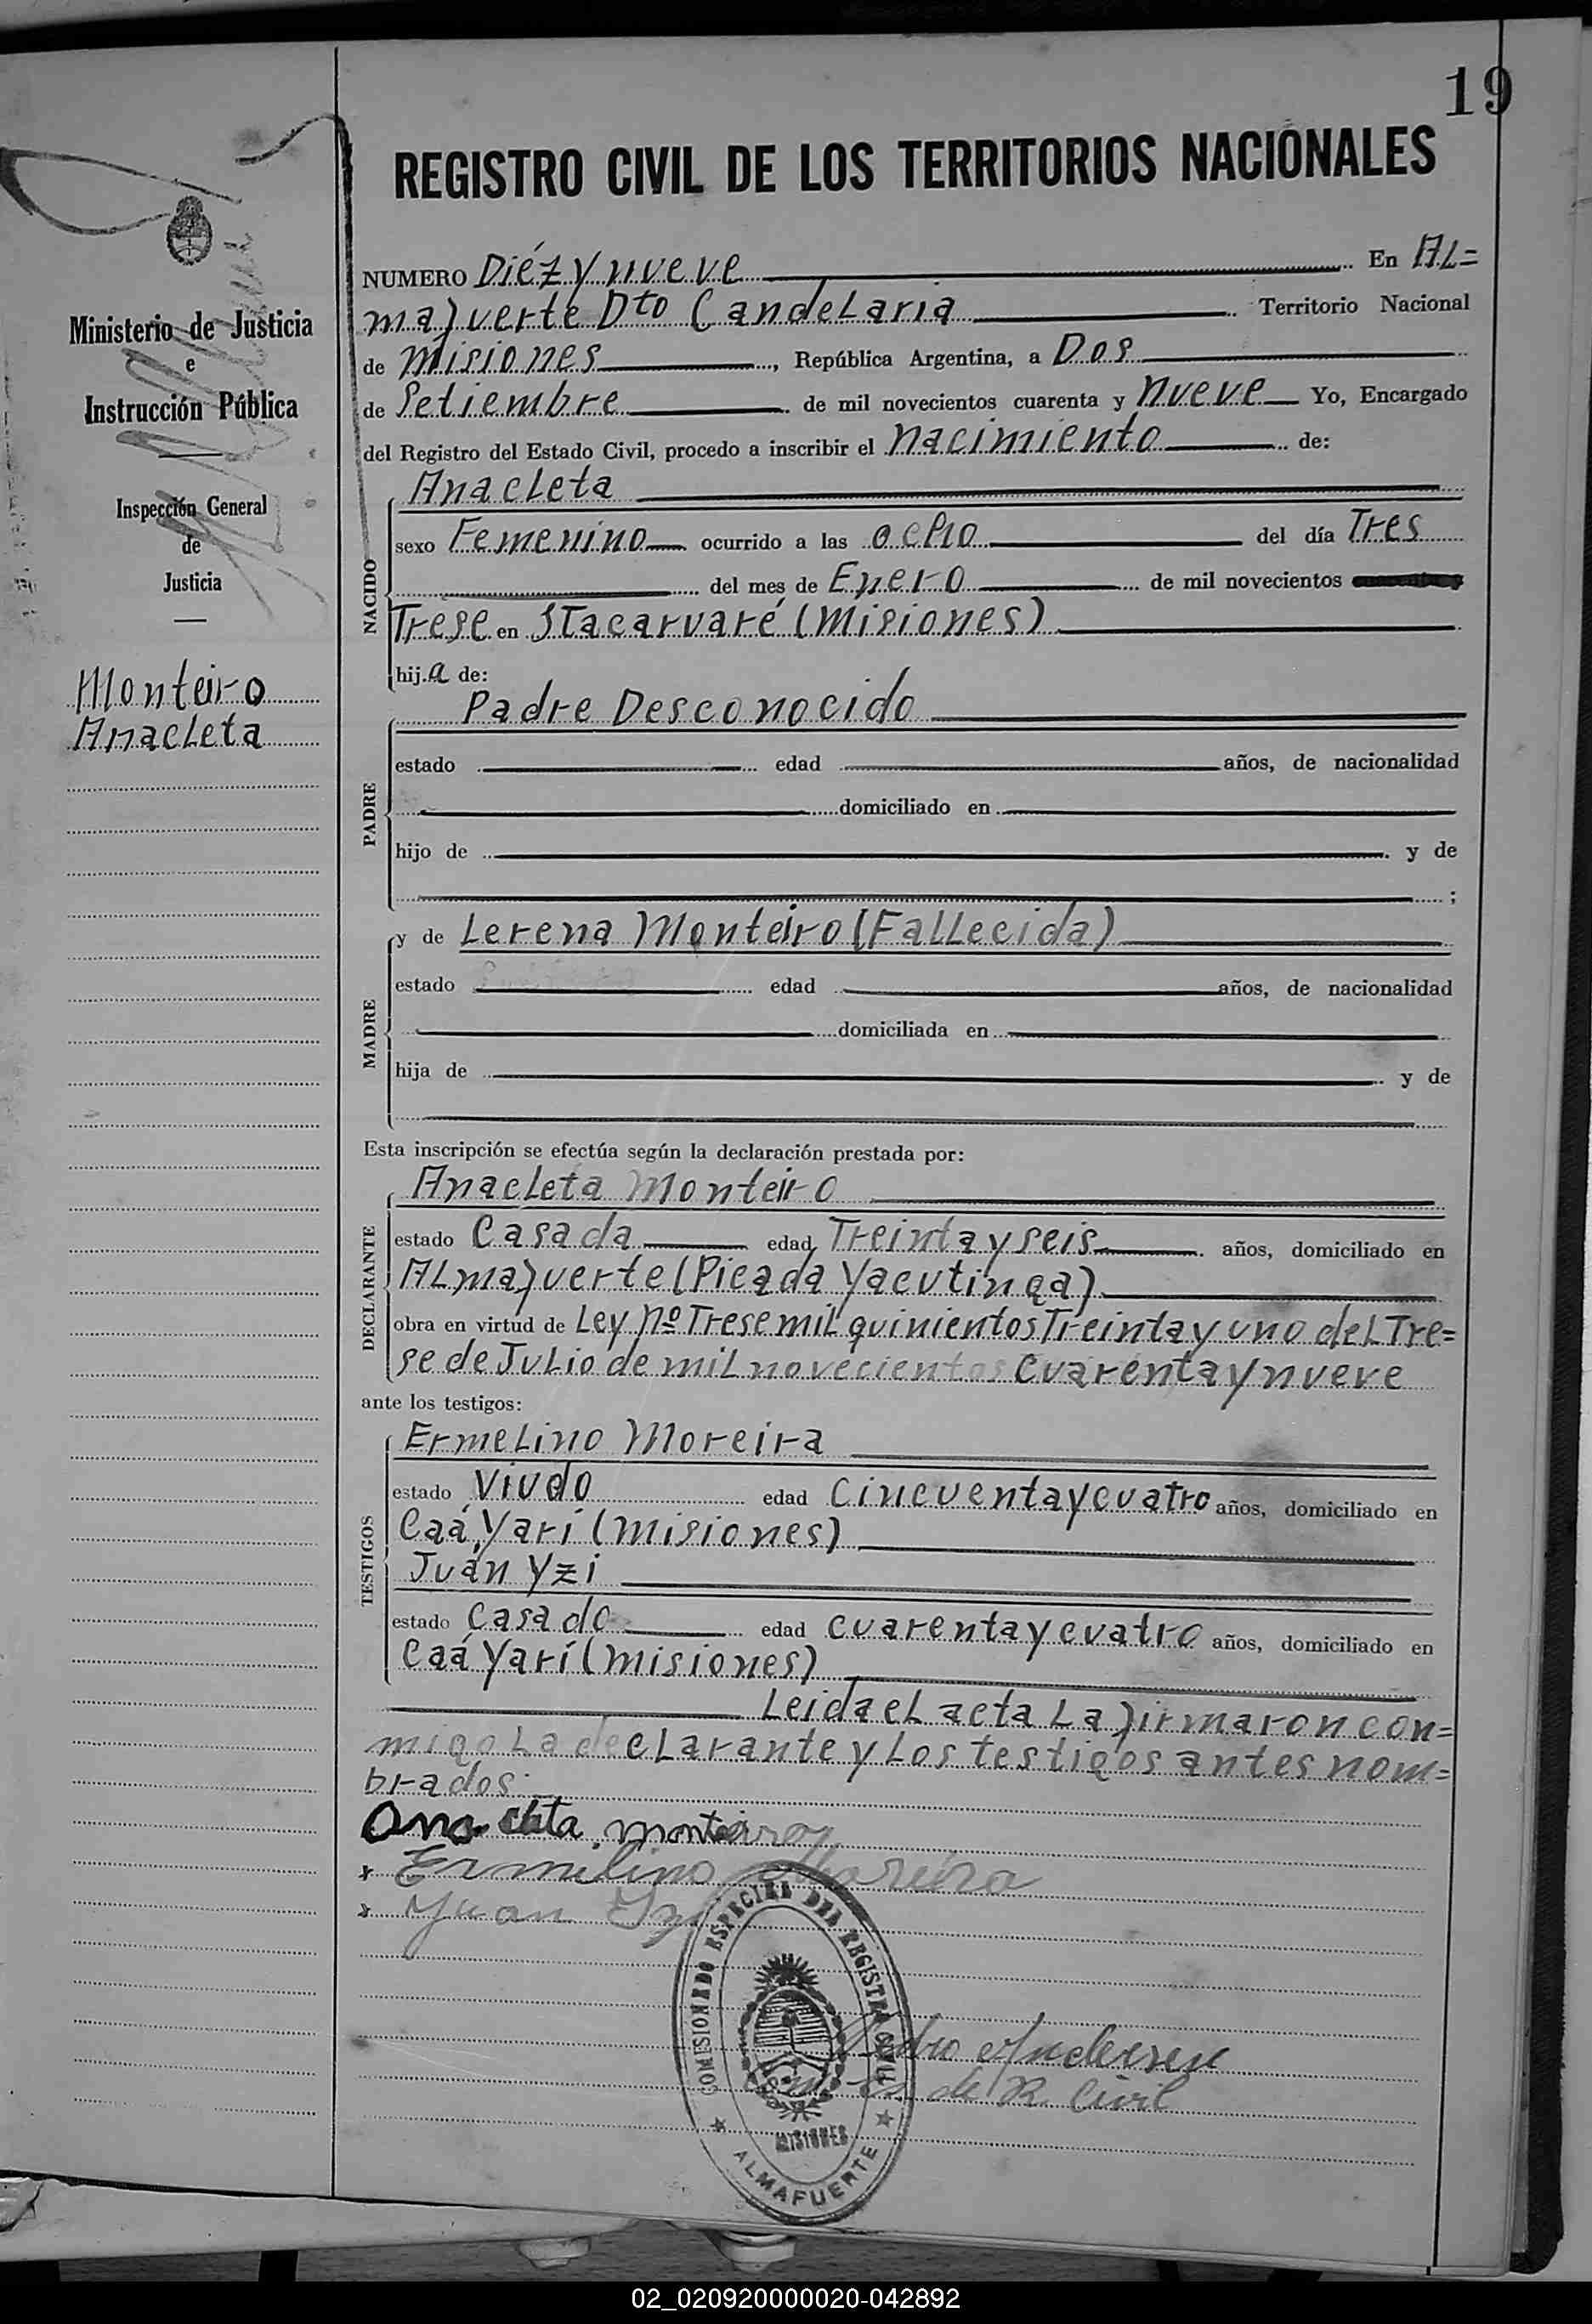 19
REGISTRO CIVIL DE LOS TERRITORIOS NACIONALES
Ministerio de Justicia
e
Instrucción Pública
Inspección General
de
Justicia
Monteiro
Anacleta
NUMERO Diéz y nueve En AL=
mafuerte Dto Candelaria Territorio Nacional
de Misiones, República Argentina, a Dos
de Setiembre de mil novecientos cuarenta y nueve Yo, Encargado
del Registro del Estado Civil, procedo a inscribir el nacimiento de:
NACIDO
Anacleta
sexo Femenino ocurrido a las ocho del día Tres
del mes de Enero de mil novecientos
Trese en Itacaruaré (Misiones)
hija de:
PADRE
Padre Desconocido
estado edad años, de nacionalidad
domiciliado en
hijo de y de
;
MADRE
y de Lerena Monteiro (Fallecida)
estado edad años, de nacionalidad
domiciliada en
hija de y de
Esta inscripción se efectúa según la declaración prestada por:
DECLARANTE
Anacleta Monteiro
estado Casada edad Treinta y seis años, domiciliado en
Almafuerte (Picada Yacutinga)
obra en virtud de Ley nº Trese mil quinientos Treinta y uno del Tre=
se de Julio de mil novecientos cuarenta y nueve
ante los testigos:
TESTIGOS
Ermelino Moreira
estado Viudo edad cincuenta y cuatro años, domiciliado en
Caá Yarí (Misiones)
Juan Yzi
estado Casado edad cuarenta y cuatro años, domiciliado en
Caá Yarí (Misiones)
Leida el acta La firmaron con=
migo La declarante y Los testigos antes nom=
brados.
Ana cleta monteiro
x Ermilino Moreira
x Juan Yzi
COMISIONADO ESPECIAL DEL REGISTRO CIVIL
MISIONES
ALMAFUERTE
Pedro Andersen
de R. Civil
02_020920000020-042892